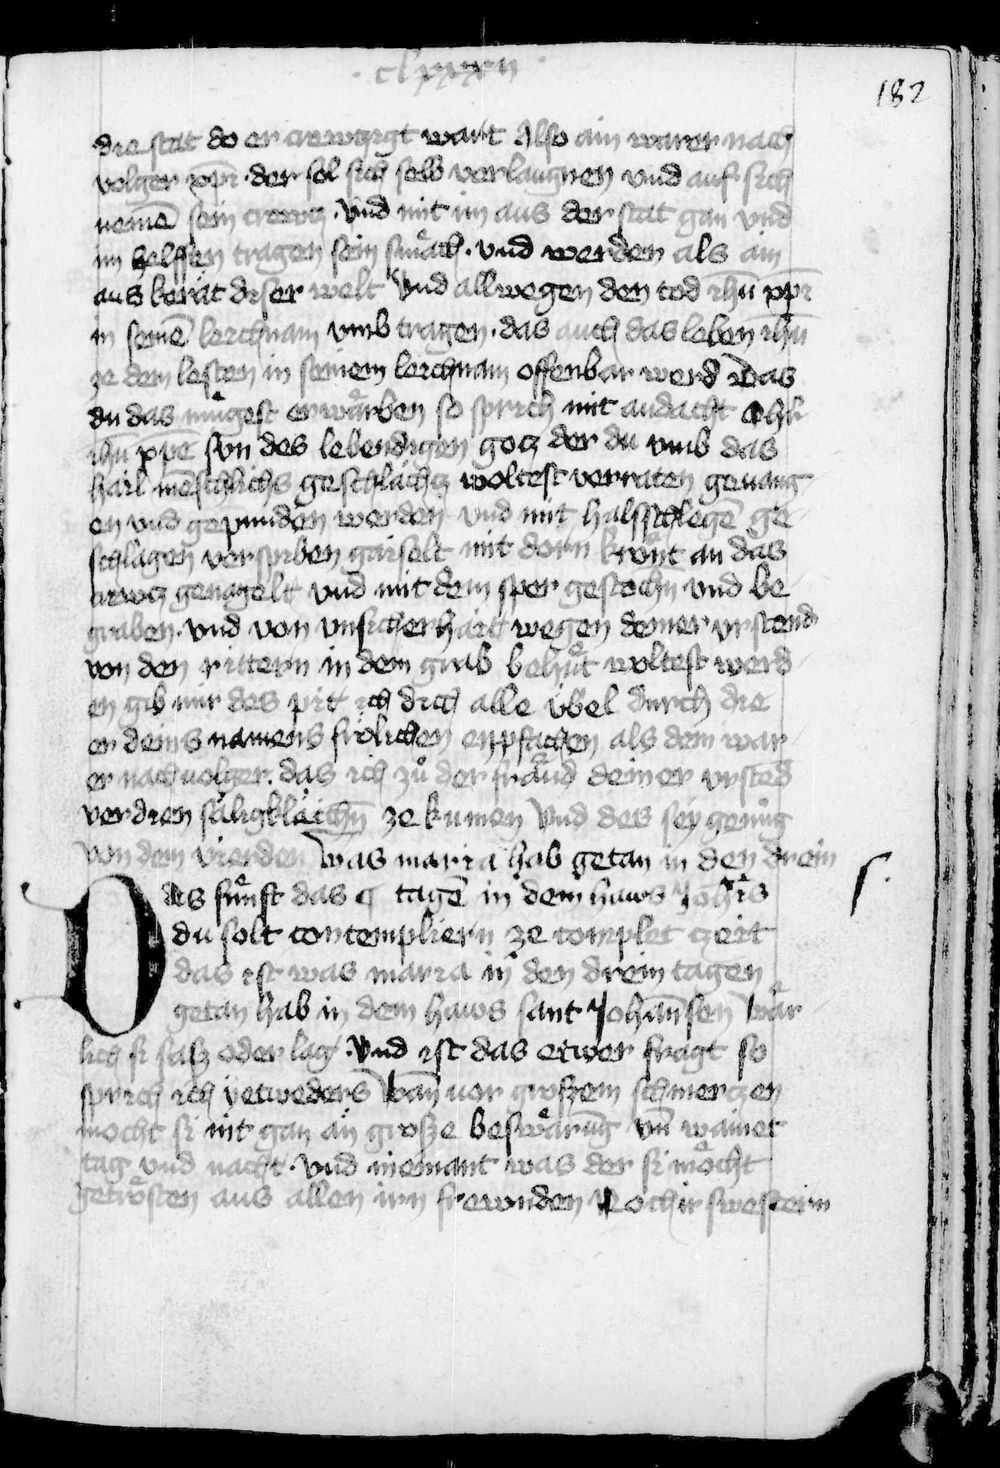 clxxxii
182
die stat do er crewczigt wart Also ain warer nach
volger xpi · der sol sich selb verlaugnen vnd auf sich
nemē sein crewcz · Vnd mit im aus der stat gan vnd
im helffen tragen sein smäch · vnd werden als ain
aus diser welt Vnd allwegen den tod ihū xpi
in seinē leichnam vmb tragen · das auch das leben ihū
ze dem lesten in seinem leichnam offenbar werd Das
du das mügest erwärben so sprich mit andacht O hr̄
ihū xpe sun des lebendigen gocz der du vmb das
hail mēschlichs geschlächcz woltest verraten geuang
en vnd gepunden werden vnd mit halsschlegē ge
schlagen verspiben gaiselt mit dorn krönt an das
crewcz genagelt vnd mit dem sper gestochn̄ vnd be
graben · vnd von vnsicherhait wegen deiner vrstend
von den rittern in dem grab behüt woltest werd
en gib mir des pit ich dich alle übel durch die
er deins namens frölichen enpfachen als dem war
er nachuolger · das ich zů der fräud deiner vrstēd
verdien säligklichn̄ ze kumen Vnd des sey genůg
von dem vierden Was maria hab getan in den drein
Das fünft das ¶ tagē in dem haws Johīs
du solt contempliern ze complet czeit
das ist was maria in den drein tagen
getan hab in dem haws sant Johānsen Wär
lich si sasz oder lag · Vnd ist das etwer fragt so
sprich ich yetweders Wan̄ vor groszem schmerczen
mocht si nit gan än grosze beswärūg vn̄ wainet
tag vnd nacht · Vnd niemant was der si möcht
getrösten aus allen irn frewnden Noch ir swestern